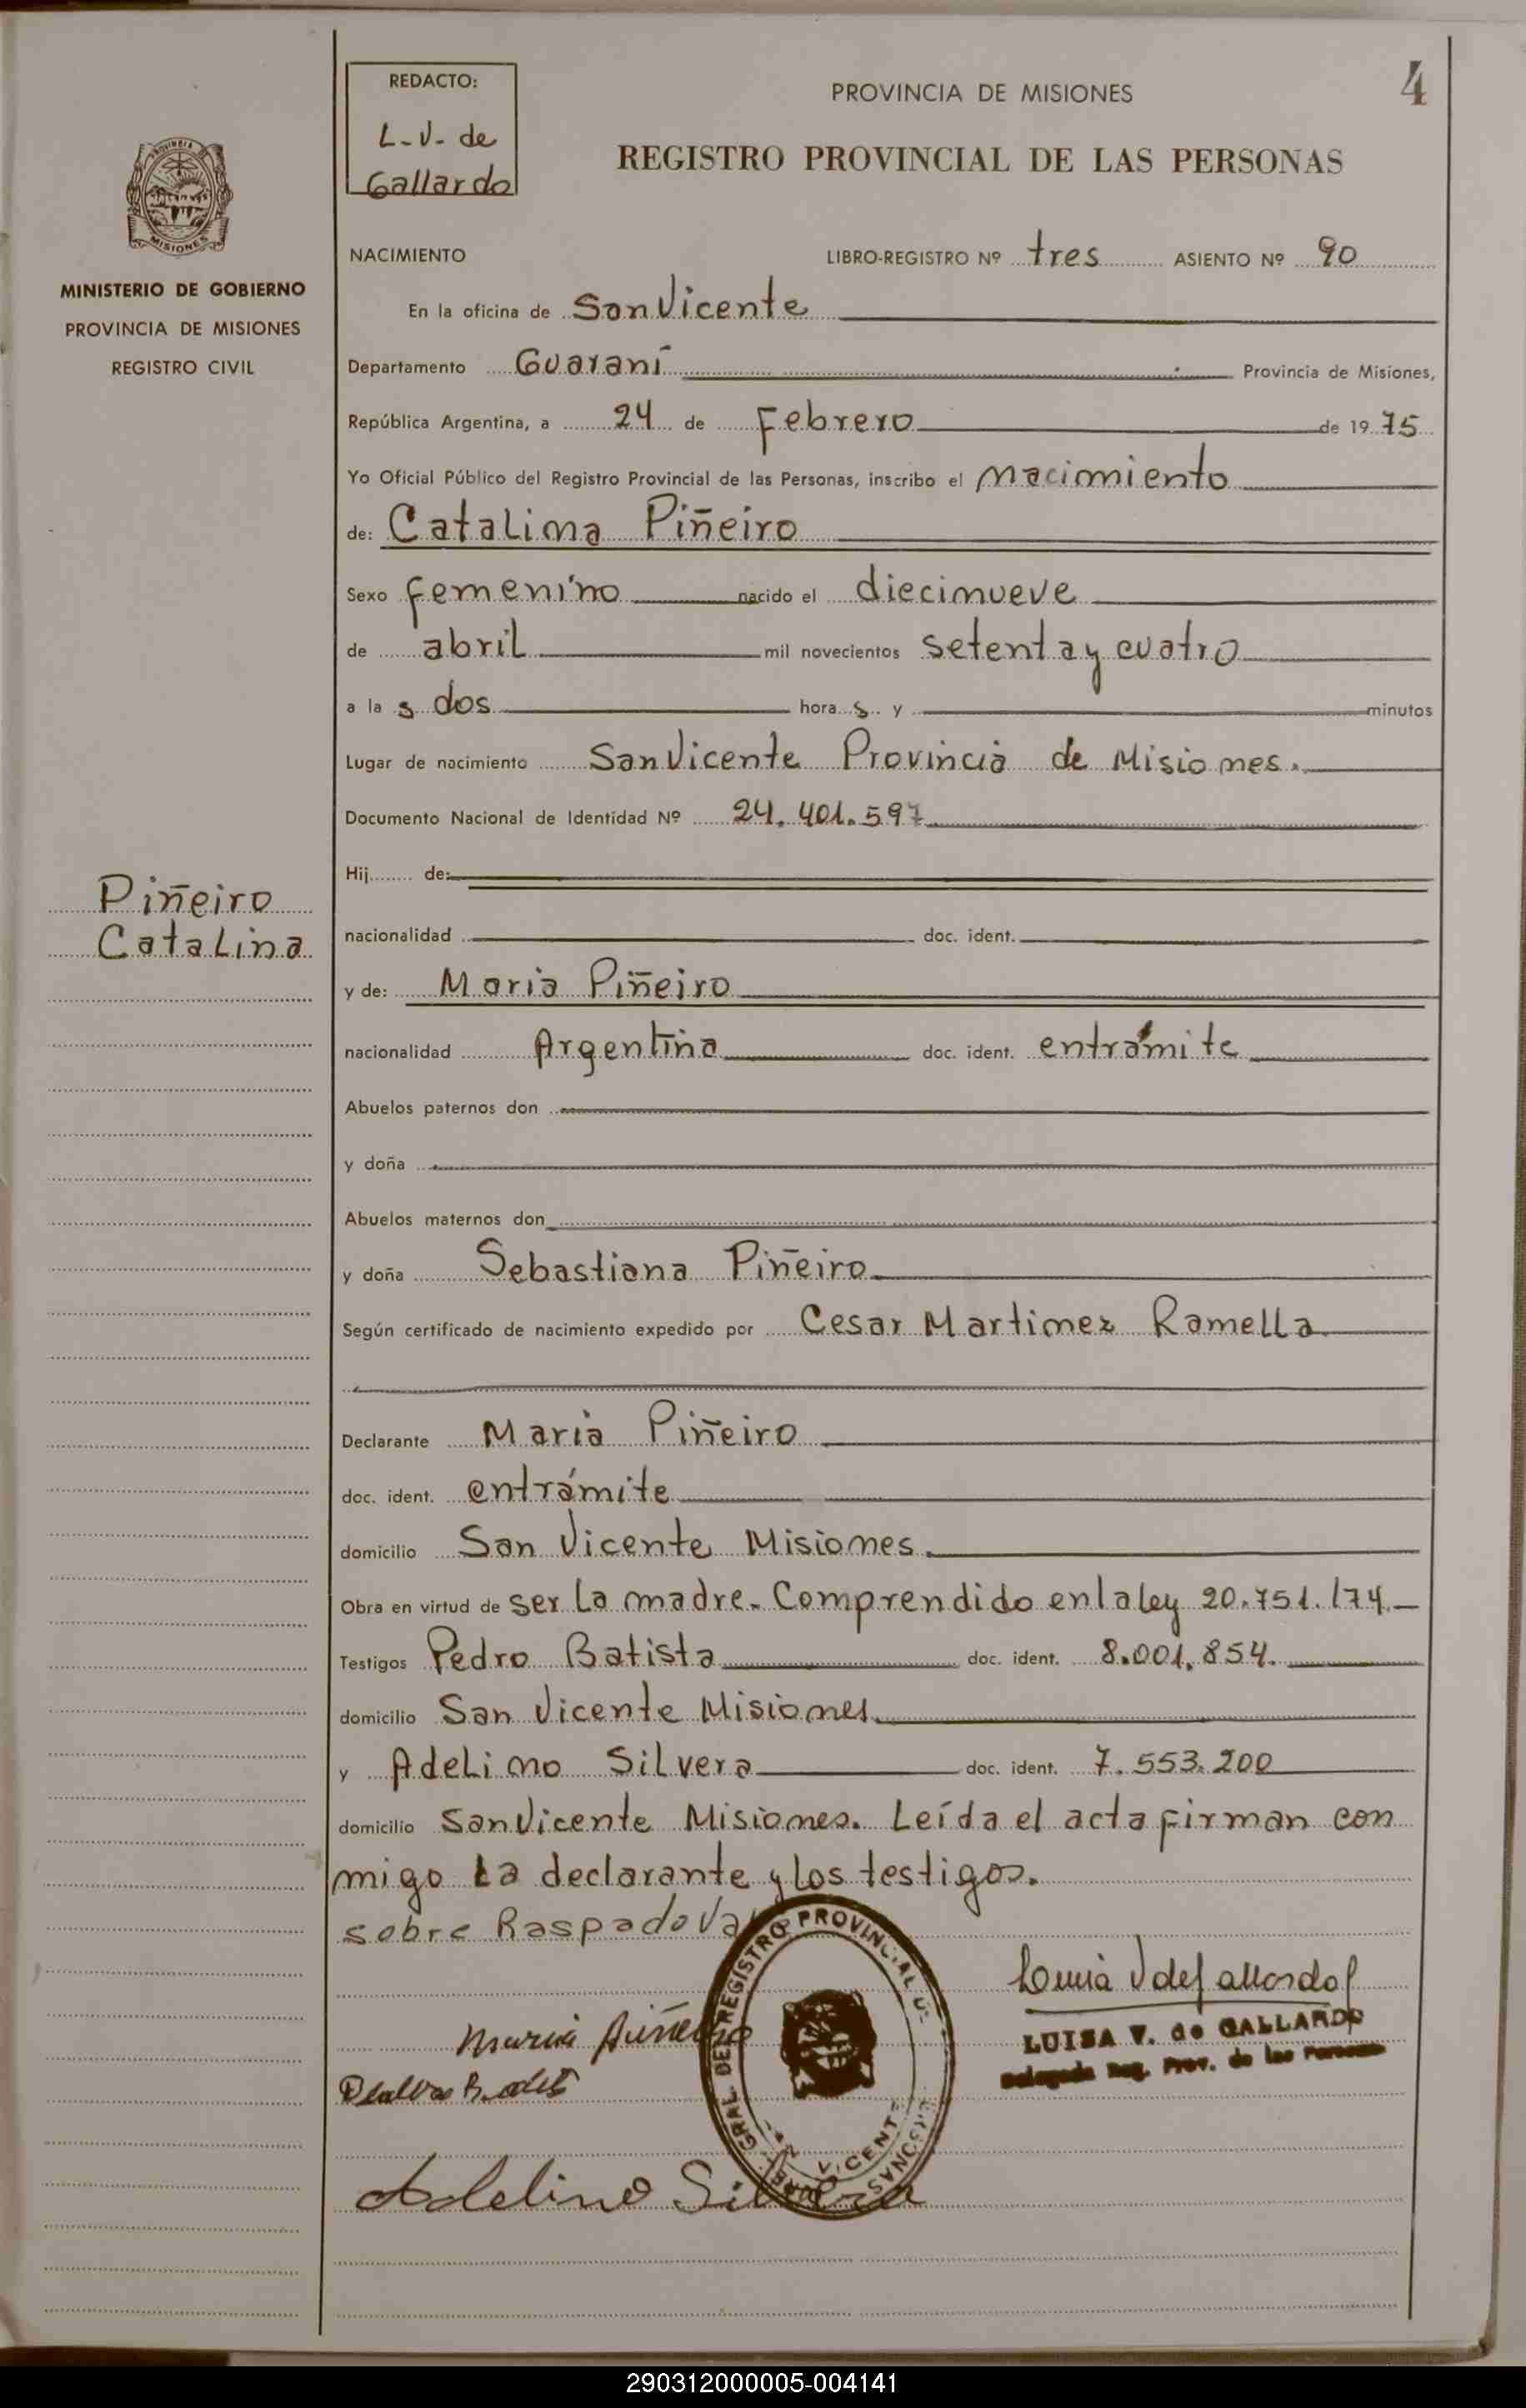 4
REDACTO:
L-V- de
Gallardo
PROVINCIA DE MISIONES
REGISTRO PROVINCIAL DE LAS PERSONAS
MISIONES
MINISTERIO DE GOBIERNO
PROVINCIA DE MISIONES
REGISTRO CIVIL
NACIMIENTO LIBRO-REGISTRO Nº tres ASIENTO Nº 90
En la oficina de San Vicente
Departamento Guaraní Provincia de Misiones,
República Argentina, a 24 de Febrero de 19 75
Yo Oficial Público del Registro Provincial de las Personas, inscribo el nacimiento
de: Catalina Piñeiro
Sexo femenino nacido el diecinueve
de abril mil novecientos setenta y cuatro
a la s dos hora s y minutos
Lugar de nacimiento San Vicente Provincia de Misiones.
Documento Nacional de Identidad Nº 24.401.597
Hij de:
Piñeiro
Catalina
nacionalidad doc. ident.
y de: Maria Piñeiro
nacionalidad Argentina doc. ident. entrámite
Abuelos paternos don
y doña
Abuelos maternos don
y doña Sebastiana Piñeiro
Según certificado de nacimiento expedido por Cesar Martinez Ramella
Declarante Maria Piñeiro
doc. ident. entrámite
domicilio San Vicente Misiones
Obra en virtud de ser la madre. Comprendido en la ley 20.751./74.
Testigos Pedro Batista doc. ident. 8.001.854.
domicilio San Vicente Misiones
y Adelino Silvera doc. ident. 7.553.200
domicilio San Vicente Misiones. Leída el acta firman con
migo la declarante y los testigos.
sobre Raspado
GRAL. DEL REGISTRO PROVINCIAL DE
VICENTE
Maria Piñeiro
LUISA V. de GALLARDO
Delegada Reg. Prov. de las Personas
Adelino Silvera
290312000005-004141